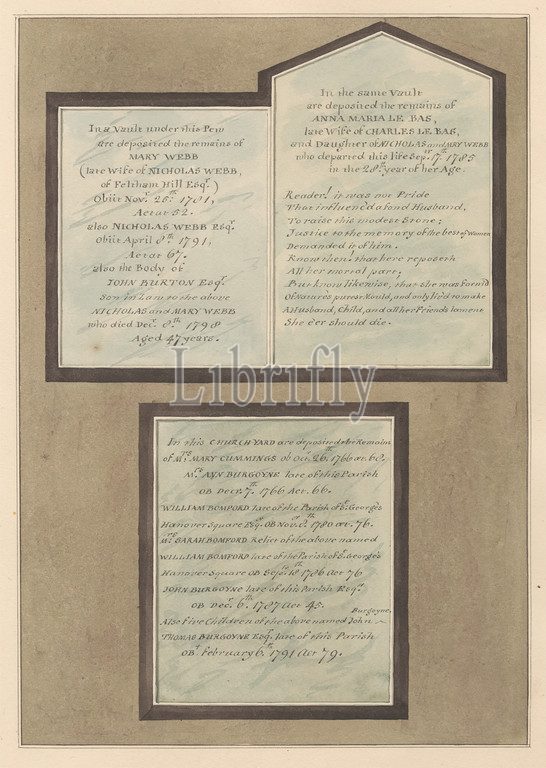 In a Vault under this Pew
are deposited the remains of
MARY WEBB
(late Wife of NICHOLAS WEBB,
of Feltham Hill Esqr.)
Obiit Novr. 25th. 1781,
Aetat 52.
also NICHOLAS WEBB Esqr.
Obiit April 8th. 1791,
Aetat 67.
also the Body of
JOHN BURTON Esqr.
Son in Law to the above
NICHOLAS and MARY WEBB
who died Decr. 8th. 1798
Aged 47 years.
In the same Vault
are deposited the remains of
ANNA MARIA LE BAS,
late Wife of CHARLES LE BAS,
and Daughter of NICHOLAS and MARY WEBB
who departed this life Sepr. 17th. 1785
in the 28th. year of her Age.
Reader! it was not Pride
That influenc'd a fond Husband,
To raise this modest Stone;
Justice to the memory of the best of Women
Demanded it of him.
Know then! that here reposeth
All her mortal part;
But know likewise, that she was form'd
Of Nature's purest Mould, and only liv'd to make
A Husband, Child, and all her Friends lament
She e'er should die.
Librifly
In this CHURCH YARD are deposited the Remains
of Mrs. MARY CUMMINGS ob Oct. 26th. 1766 aet. 62.
Mrs. ANN BURGOYNE late of this Parish
OB Decr. 7th. 1766 Aet. 66.
WILLIAM BOMFORD late of the Parish of St. George's
Hanover Square Esqr. OB Novr. 2th. 1780 aet. 76.
Mrs. SARAH BOMFORD Relict of the above named
WILLIAM BOMFORD late of the Parish of St. George's
Hanover Square OB Sepr. 18th. 1786 Aet 76
JOHN BURGOYNE late of this Parish Esqr.
OB Decr. 6th. 1787 Aet 45.
Also Five Children of the above named John Burgoyne.
THOMAS BURGOYNE Esqr. late of this Parish
OBt. February 6th. 1791 Aet 79.